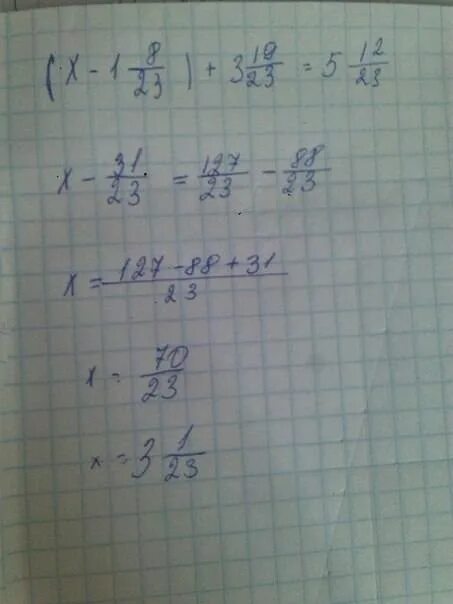 (x - 1 8/23) + 3 19/23 = 5 12/23
x - 31/23 = 127/23 - 88/23
x = (127 - 88 + 31)/23
x = 70/23
x = 3 1/23